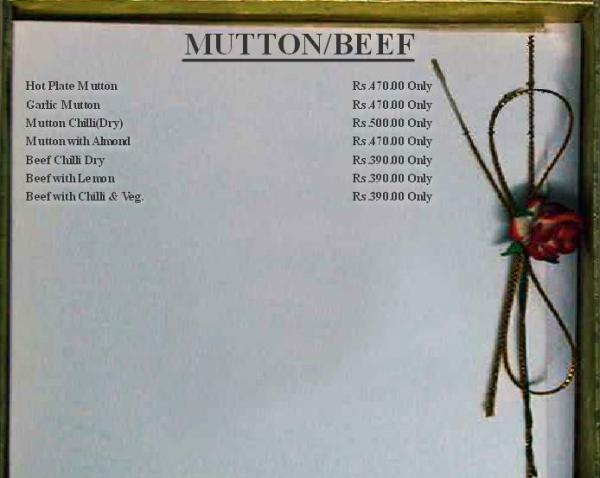 MUTTON/BEEF
Hot Plate Mutton Rs.470.00 Only
Garlic Mutton Rs.470.00 Only
Mutton Chilli(Dry) Rs.500.00 Only
Mutton with Almond Rs.470.00 Only
Beef Chilli Dry Rs.390.00 Only
Beef with Lemon Rs.390.00 Only
Beef with Chilli & Veg. Rs.390.00 Only